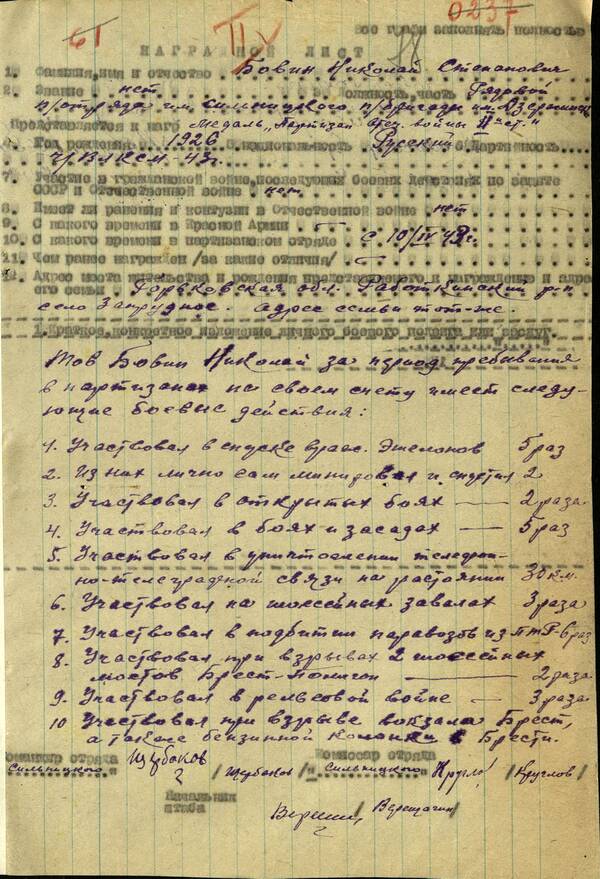 61 II 0237
Все графы заполнять полностью
18
НАГРАДНОЙ ЛИСТ
1. Фамилия, имя и отчество Бовин Николай Степанович
2. Звание нет Должность, часть Рядовой
п/отряда им. Сильницкого п/бригады им. Дзержинск.
Представляется к наго Медаль „Партизан Отеч. войны II ст."
Год рождения 1926 Национальность Русский 6 Партийность
Чл. ВЛКСМ - 43 г.
7. Участие в гражданской войне, последующих боевых действиях по защите
СССР и Отечественной войне нет
8. Имеет ли ранения и контузии в Отечественной войне нет
9. С какого времени в Красной Армии —
10. С какого времени в партизанском отряде с 10/IV 43 г.
11. Чем ранее награжден /за какие отличия/ —
12. Адрес места жительства и рождения представляемого к награждению и адрес
его семьи Горьковская обл. Работкинский р-н
село Запрудное. Адрес семьи тот-же.
1. Краткое, конкретное изложение личного боевого подвига или заслуг
Тов Бовин Николай за период пребывания
в партизанах на своем счету имеет следу-
ющие боевые действия:
1. Участвовал в спуске враж. Эшелонов 5 раз
2. Из них лично сам минировал и спустил 2
3. Участвовал в открытых боях — 2 раза
4. Участвовал в боях и засадах — 5 раз
5. Участвовал в уничтожении телефон-
но-телеграфной связи на растоянии 30 км.
6. Участвовал на шоссейных завалах 3 раза
7. Участвовал в подбитии паравозов из ПТР - 6 раз
8. Участвовал при взрывах 2 шоссейных
мостов Брест- — 2 раза
9. Участвовал в рельсовой войне — 3 раза
10 Участвовал при взрыве вокзала Брест,
а также бензинной колонки в Бресте.
Командир отряда Щербаков Комиссар отряда
Сильницкого" /Щербаков/ "Сильницкого" Кругло /Круглов/
Начальник
штаба Верещ /Верещагин/